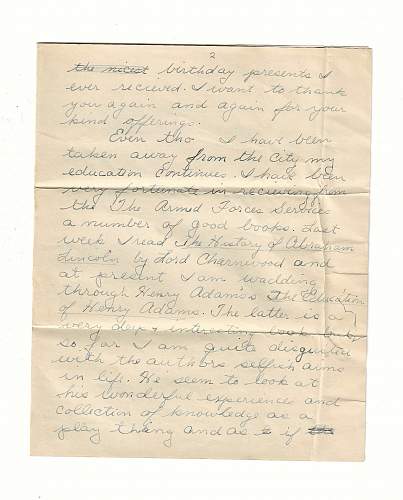 2
the nicest birthday presents I
ever recieved. I want to thank
you again and again for your
kind offerings.
Even tho I have been
taken away from the City my
education continues. I have been
very fortunate in recieving from
the The Armed Forces Services
a number of good books. Last
week I read The History of Abraham
Lincoln by Lord Charnwood and
at present I am wadding
through Henry Adams's The Education
of Henry Adams. The latter is a
very deep & interesting book but
so far I am quite disgusted
with the authors selfish aims
in life. He seem to look at
his wonderful experience and
collection of knowledge as a
play thing and as if